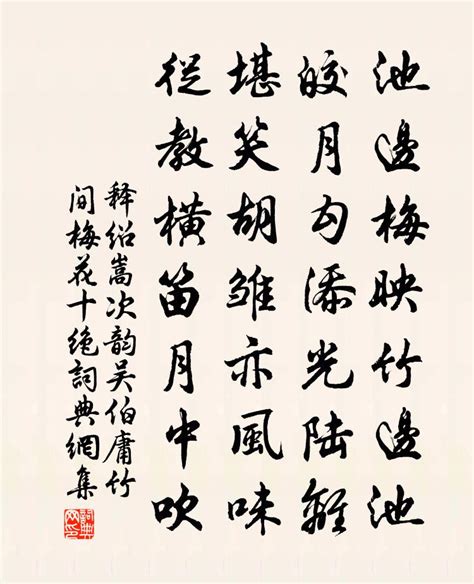 池邊梅映竹邊池
皎月勾添光陸離
堪笑胡雛亦風味
從教橫笛月中吹
释绍嵩次韵吴伯庸竹
间梅花十绝詞典網集